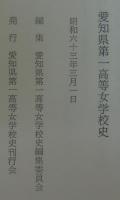 愛知県第一高等女学校史
昭和六十三年三月一日
編集 愛知県第一高等女学校史編集委員会
発行 愛知県第一高等女学校史刊行会